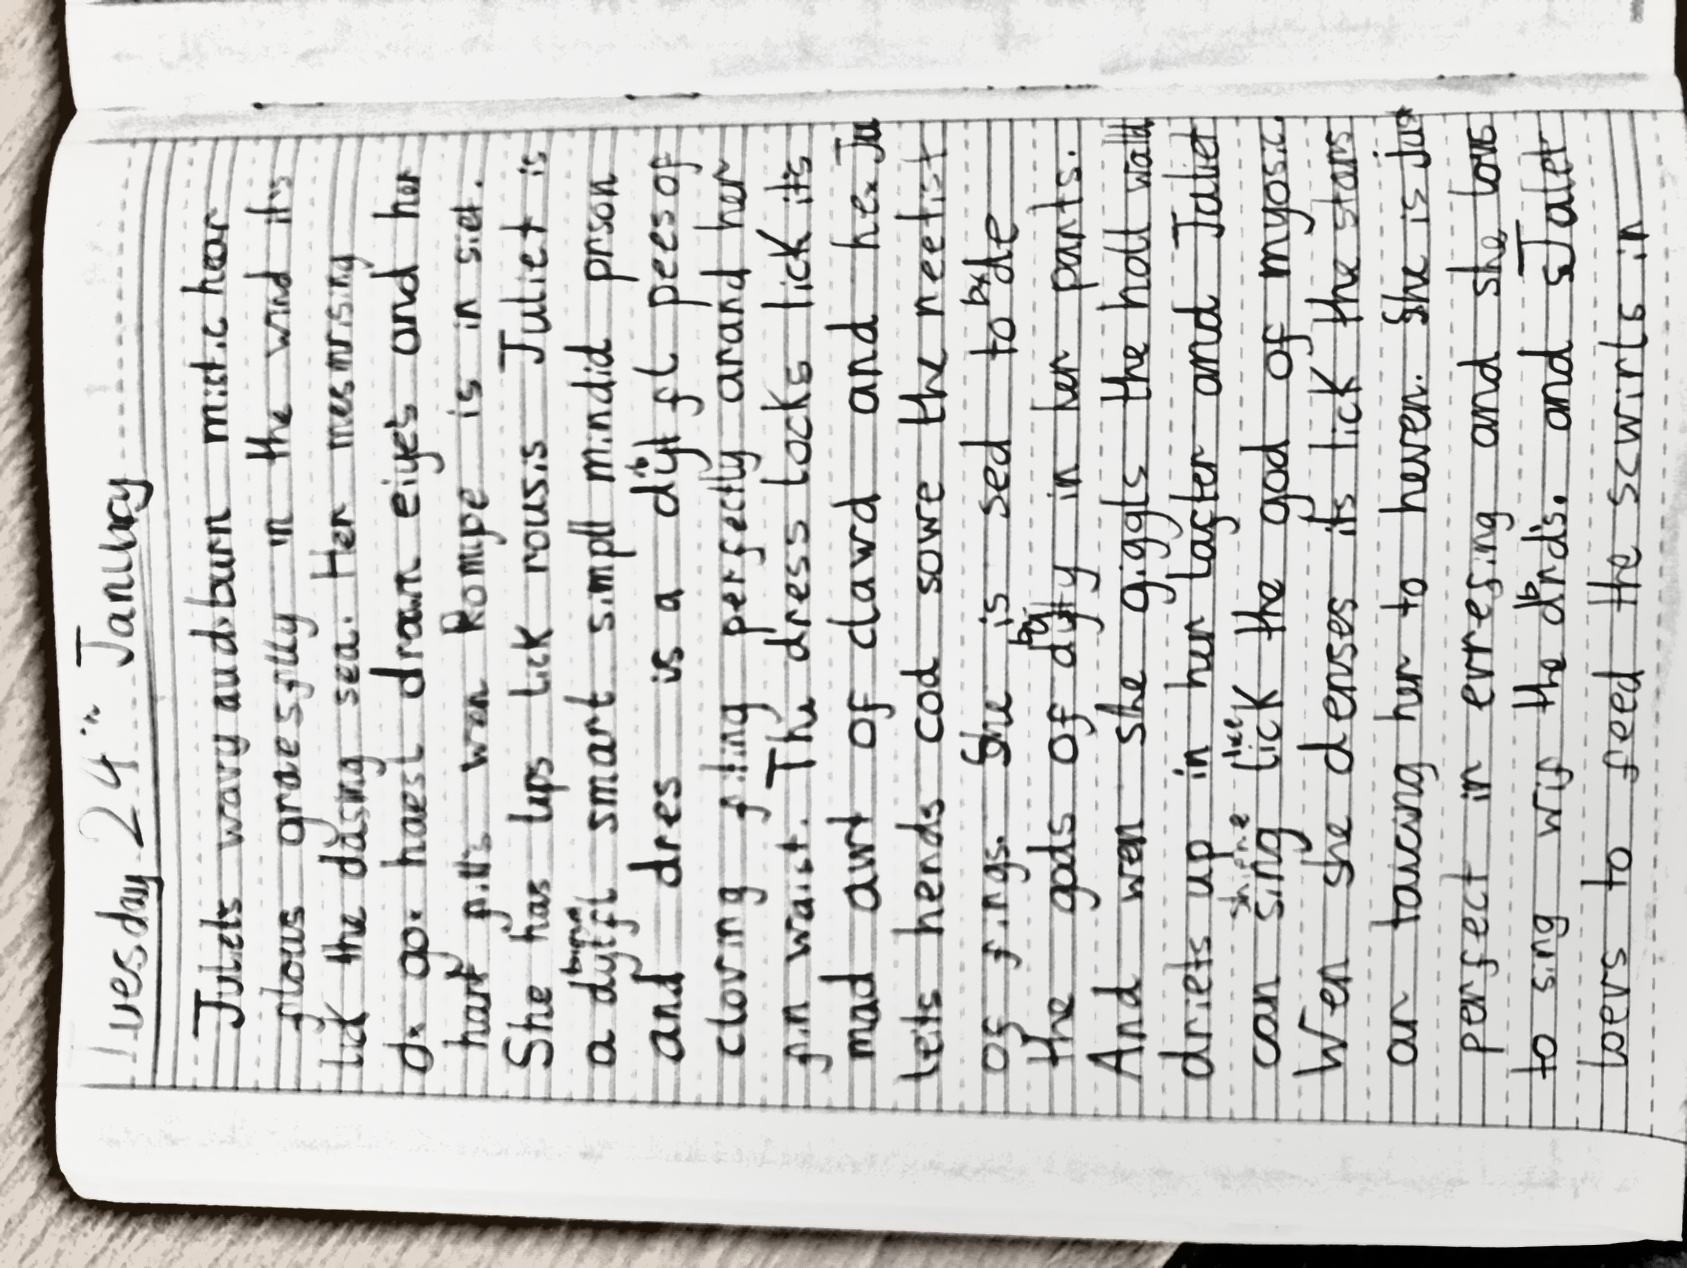 Tuesday 24th January
Juliets wavy audburn mistic hear
flows graesfilly in the wind it's
lick the dasing sea. Her mesmrising
hasel drawn eiyes and her
hart fills wen Romipe is in siet.
She has lups lick rousis Juliet is
a dytifl smart simpll mindid prson
and dres is a diytifl pees of
cloving fiting perfectly arand her
fin waist. The dress locks lick it's
mad awt of clawd and hex Ju
leits hends cod sowe the neetist
of fings. She is sed to be
the gods of dyty in her parits.
And wen she giggls the holl walld
driets up in her lacfter and Jaliet
shine like
can sing lick the god of myosic.
Wen she denses its lick the stars
ar taucing her to heven. She is jus
perfect in evresing and she lovs
to sing wif the birds. and Jalet
loevs to feed the scwirls in